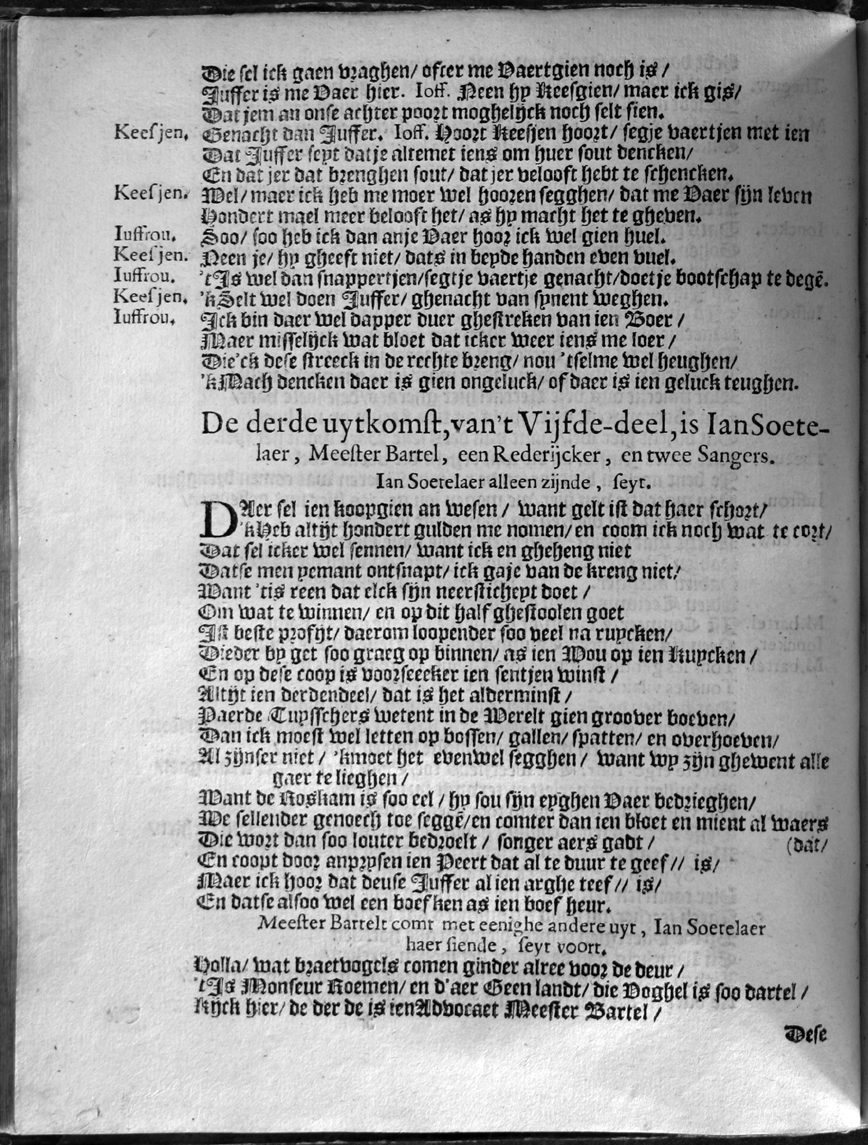 Die sel ick gaen vraghen/ ofter me Vaertgien noch is/
Juffer is me Vaer hier. Ioff. Neen hy Keesgien/ maer ick gis/
Dat jem an onse achter poort moghelijck noch selt sien.
Keesjen. Genacht dan Juffer. Ioff. Hoort Keesjen hoort/ segje vaertjen met ien
Dat Juffer seyt datje altemet iens om huer sout dencken/
En dat jer dat brenghen sout/ dat jer velooft hebt te schencken.
Keesjen. Wel/ maer ick heb me moer wel hooren segghen/ dat me Vaer sijn leven
Hondert mael meer belooft het/ as hy macht het te gheven.
Iuffrou. Soo/ soo heb ick dan anje Vaer hoor ick wel gien huel.
Keesjen. Neen je/ hy gheeft niet/ dats in beyde handen even vuel.
Iuffrou. 'tIs wel dan snappertjen/segtje vaertje genacht/doetje bootschap te degẽ.
Keesjen. 'kSelt wel doen Juffer/ ghenacht van synent weghen.
Iuffrou. Ick bin daer wel dapper duer ghestreken van ien Boer/
Maer misselijck wat bloet dat icker weer iens me loer/
Die'ck dese streeck in de rechte breng/ nou 'tselme wel heughen/
'kMach dencken daer is gien ongeluck/ of daer is ien geluck teughen.
De derde uytkomst, van't Vijfde-deel, is Ian Soete-
laer, Meester Bartel, een Rederijcker, en twee Sangers.
Ian Soetelaer alleen zijnde, seyt.
DAer sel ien koopgien an wesen/ want gelt ist dat haer schort/
'kHeb altijt hondert gulden me nomen/ en coom ick noch wat te cort/
Dat sel icker wel sennen/ want ick en gheheng niet
Datse men yemant ontsnapt/ ick gaje van de kreng niet/
Want 'tis reen dat elck sijn neersticheyt doet/
Om wat te winnen/ en op dit half ghestoolen goet
Ist beste profijt/ daerom loopender soo veel na ruycken/
Dieder by get soo graeg op binnen/ as ien Wou op ien Kuycken/
En op dese coop is voorseecker ien sentjen winst/
Altijt ien derdendeel/ dat is het alderminst/
Paerde Tuysschers wetent in de Werelt gien groover boeven/
Dan ick moest wel letten op bossen/ gallen/ spatten/ en overhoeven/
Al zijnser niet/ 'kmoet het evenwel segghen/ want wy zijn ghewent alle
gaer te lieghen/
Want de Roskam is soo eel/ hy sou sijn eyghen Vaer bedrieghen/
We sellender genoech toe seggẽ/en comter dan ien bloet en mient al waers
Die wort dan soo louter bedroelt/ songer aers gadt/ (dat/
En coopt door anprysen ien Peert dat al te duur te geef// is/
Maer ick hoor dat deuse Juffer al ien arghe teef// is/
En datse alsoo wel een boefken as ien boef heur.
Meester Bartelt comt met eenighe andere uyt, Ian Soetelaer
haer siende, seyt voort.
Holla/ wat braetvogels comen ginder alree voor de deur/
'tIs Monseur Roemen/ en d'aer Geen landt/ die Voghel is soo dartel/
Kijck hier/ de der de is ienAdvocaet Meester Bartel/
Dese